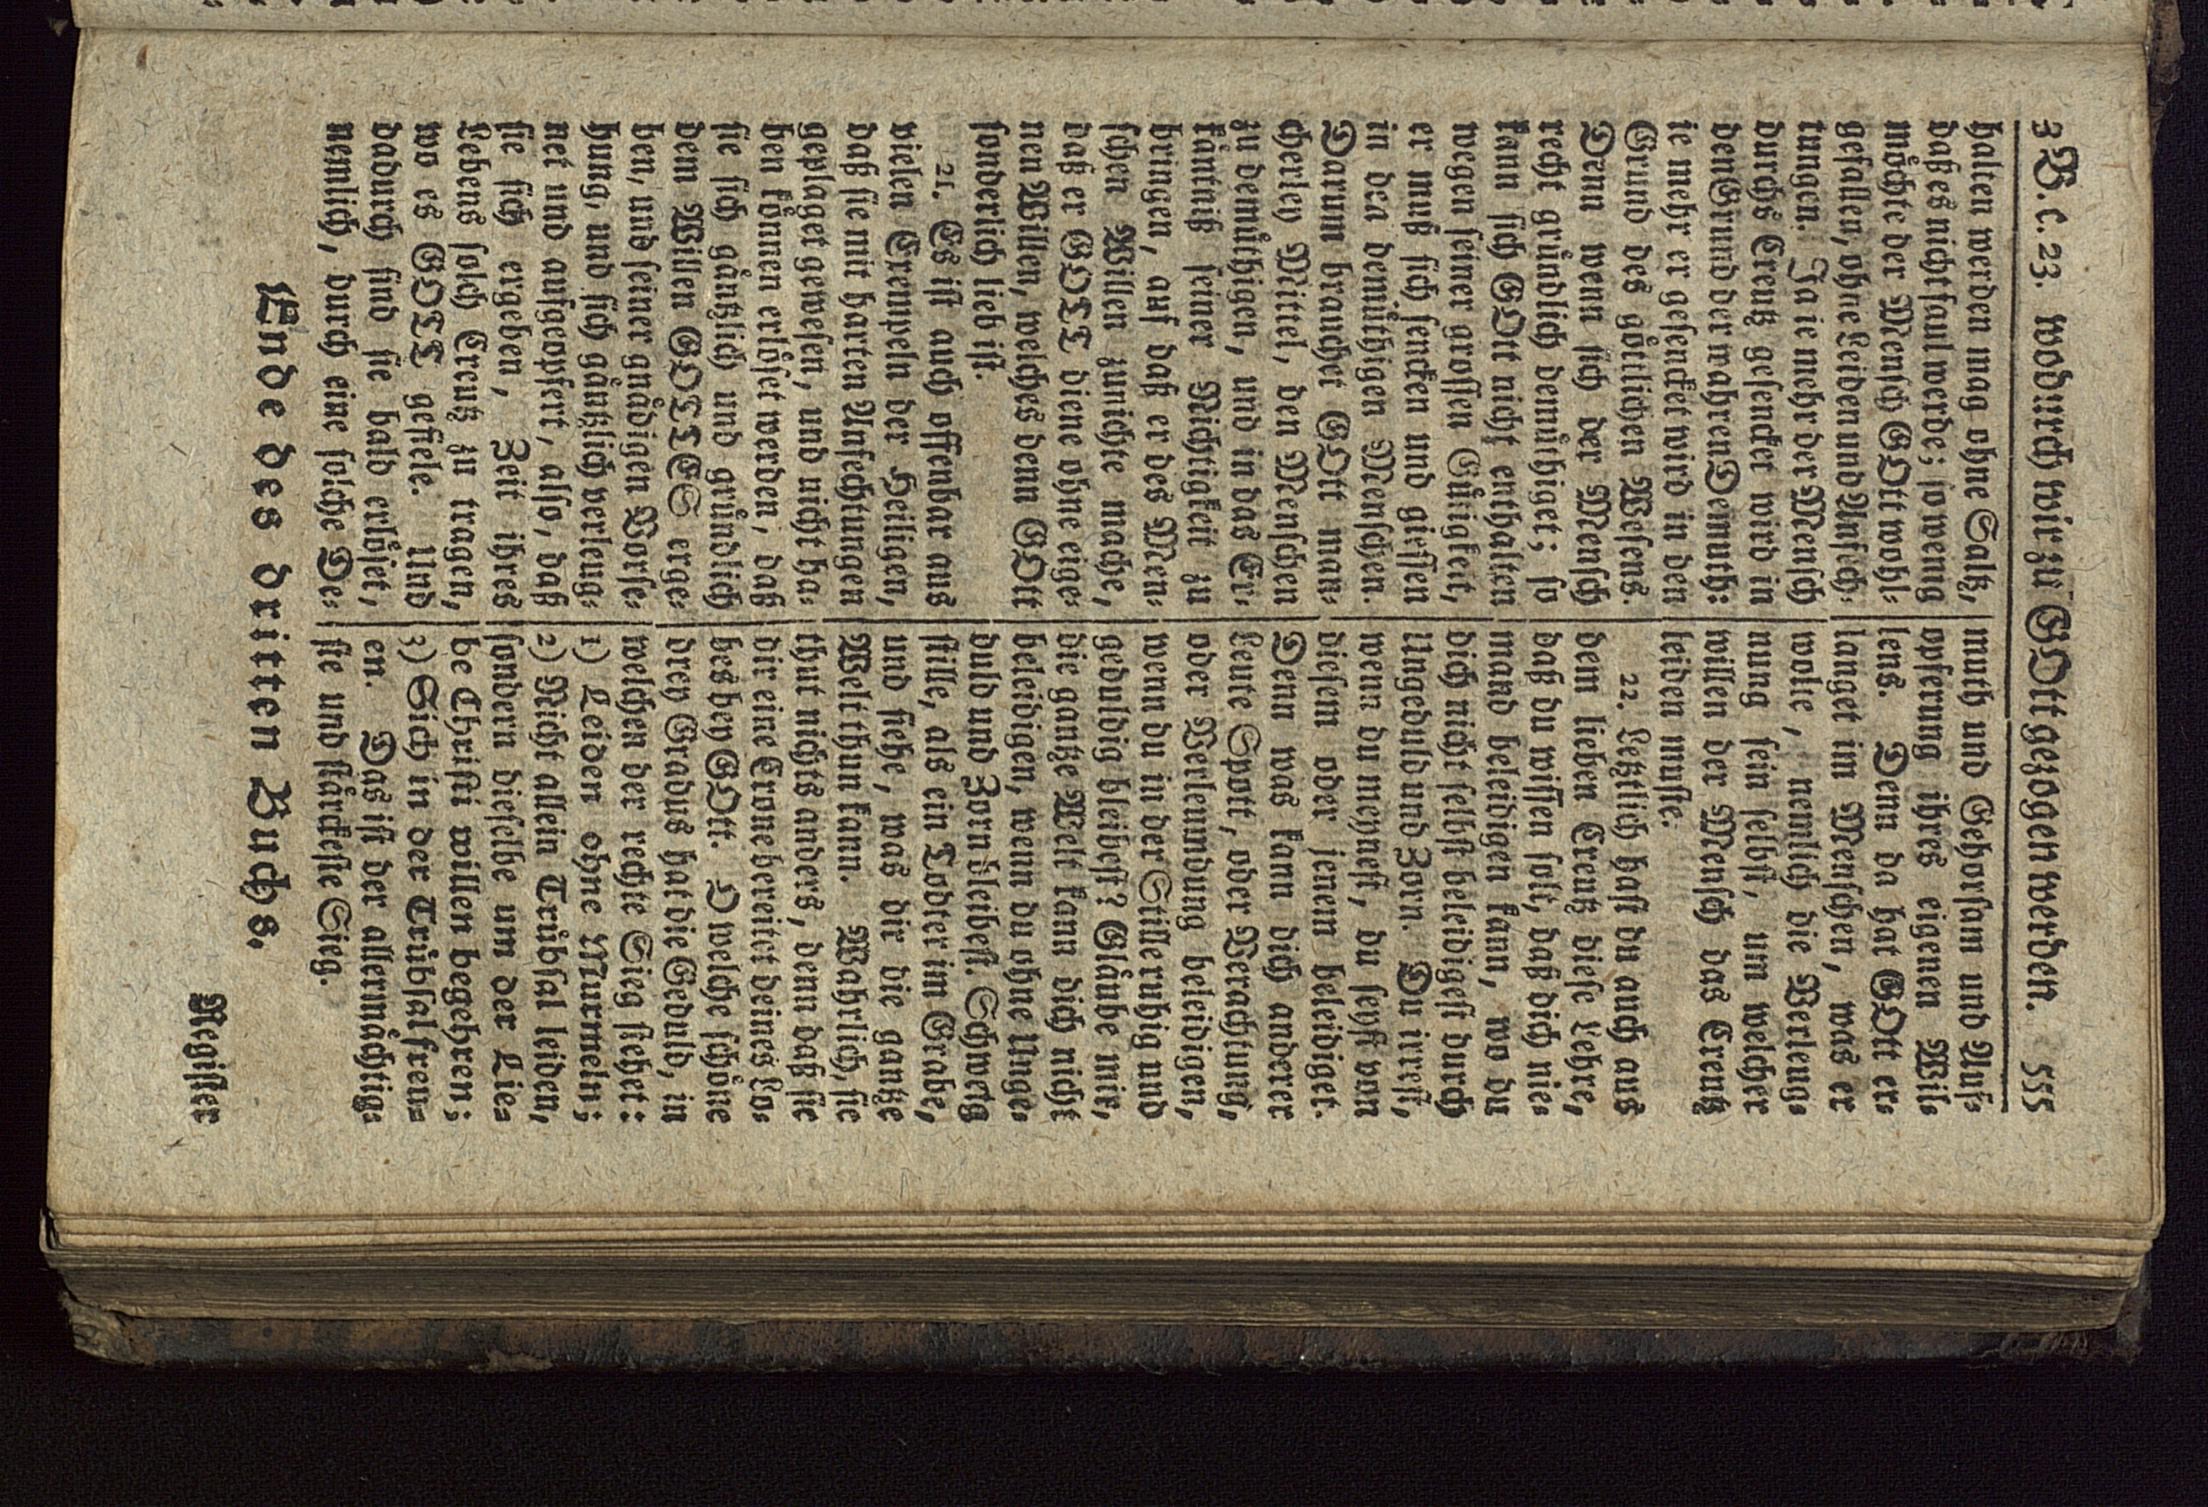 3 B. c. 23. wodurch wir zu GOtt gezogen werden. 555
halten werden mag ohne Saltz,
daß es nicht faul werde; so wenig
möchte der Mensch GOtt wohl-
gefallen, ohne Leiden und Anfech-
tungen. Ja ie mehr der Mensch
durchs Creutz gesencket wird in
den Grund der wahren Demuth:
ie mehr er gesencket wird in den
Grund des götlichen Wesens.
Denn wenn sich der Mensch
recht gründlich demüthiget; so
kann sich GOtt nicht enthalten
wegen seiner grossen Gütigkeit,
er muß sich sencken und giessen
in den demüthigen Menschen.
Darum brauchet GOtt man-
cherley Mittel, den Menschen
zu demüthigen, und in das Er-
käntniß seiner Nichtigkeit zu
bringen, auf daß er des Men-
schen Willen zunichte mache,
daß er GOTT diene ohne eige-
nen Willen, welches denn GOtt
sonderlich lieb ist.
21. Es ist auch offenbar aus
vielen Exempeln der Heiligen,
daß sie mit harten Anfechtungen
geplaget gewesen, und nicht ha-
ben können erlöset werden, daß
sie sich gäntzlich und gründlich
dem Willen GOTTES erge-
ben, und seiner gnädigen Vorse-
hung, und sich gäntzlich verleug-
net und aufgeopfert, also, daß
sie sich ergeben, Zeit ihres
Lebens solch Creutz zu tragen,
wo es GOTT gefiele. Und
dadurch sind sie bald erlöset,
nemlich, durch eine solche De-
muth und Gehorsam und Auf-
opferung ihres eigenen Wil-
lens. Denn da hat GOtt er-
langet im Menschen, was er
wolte, nemlich die Verleug-
nung sein selbst, um welcher
willen der Mensch das Creutz
leiden muste.
22. Letzlich hast du auch aus
dem lieben Creutz diese Lehre,
daß du wissen solt, daß dich nie-
mand beleidigen kann, wo du
dich nicht selbst beleidigest durch
Ungedult und Zorn. Du irrest,
wenn du meynest, du seyst von
diesem oder jenem beleidiget.
Denn was kann dich anderer
Leute Spott, oder Verachtung,
oder Verleumdung beleidigen,
wenn du in der Stille ruhig und
geduldig bleibest? Gläube mir,
die gantze Welt kann dich nicht
beleidigen, wenn du ohne Unge-
duld und Zorn bleibest. Schweig
stille, als ein Todter im Grabe,
und siehe, was dir die gantze
Welt thun kann. Wahrlich, sie
thut nichts anders, denn daß sie
dir eine Crone bereitet deines Lo-
bes bey GOtt. O welche schöne
drey Gradus hat die Gedult, in
welchen der rechte Sieg stehet:
1) Leiden ohne Murmeln;
2) Nicht allein Trübsal leiden,
sondern dieselbe um der Lie-
be Christi willen begehren;
3) Sich in der Trübsal freu-
en. Das ist der allermächtig-
ste und stärckeste Sieg.
Ende des dritten Buchs.
Register